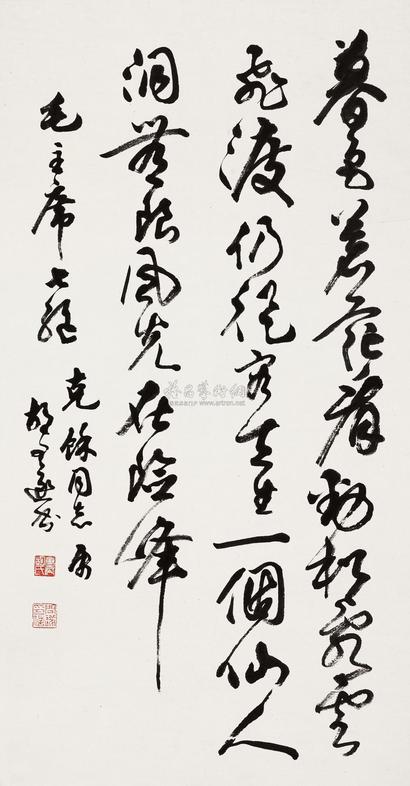 暮色苍茫看劲松乱云
飞渡仍从容天生一個仙人
洞无限风光在险峰
毛主席七绝
克勤同志属
胡问遂书